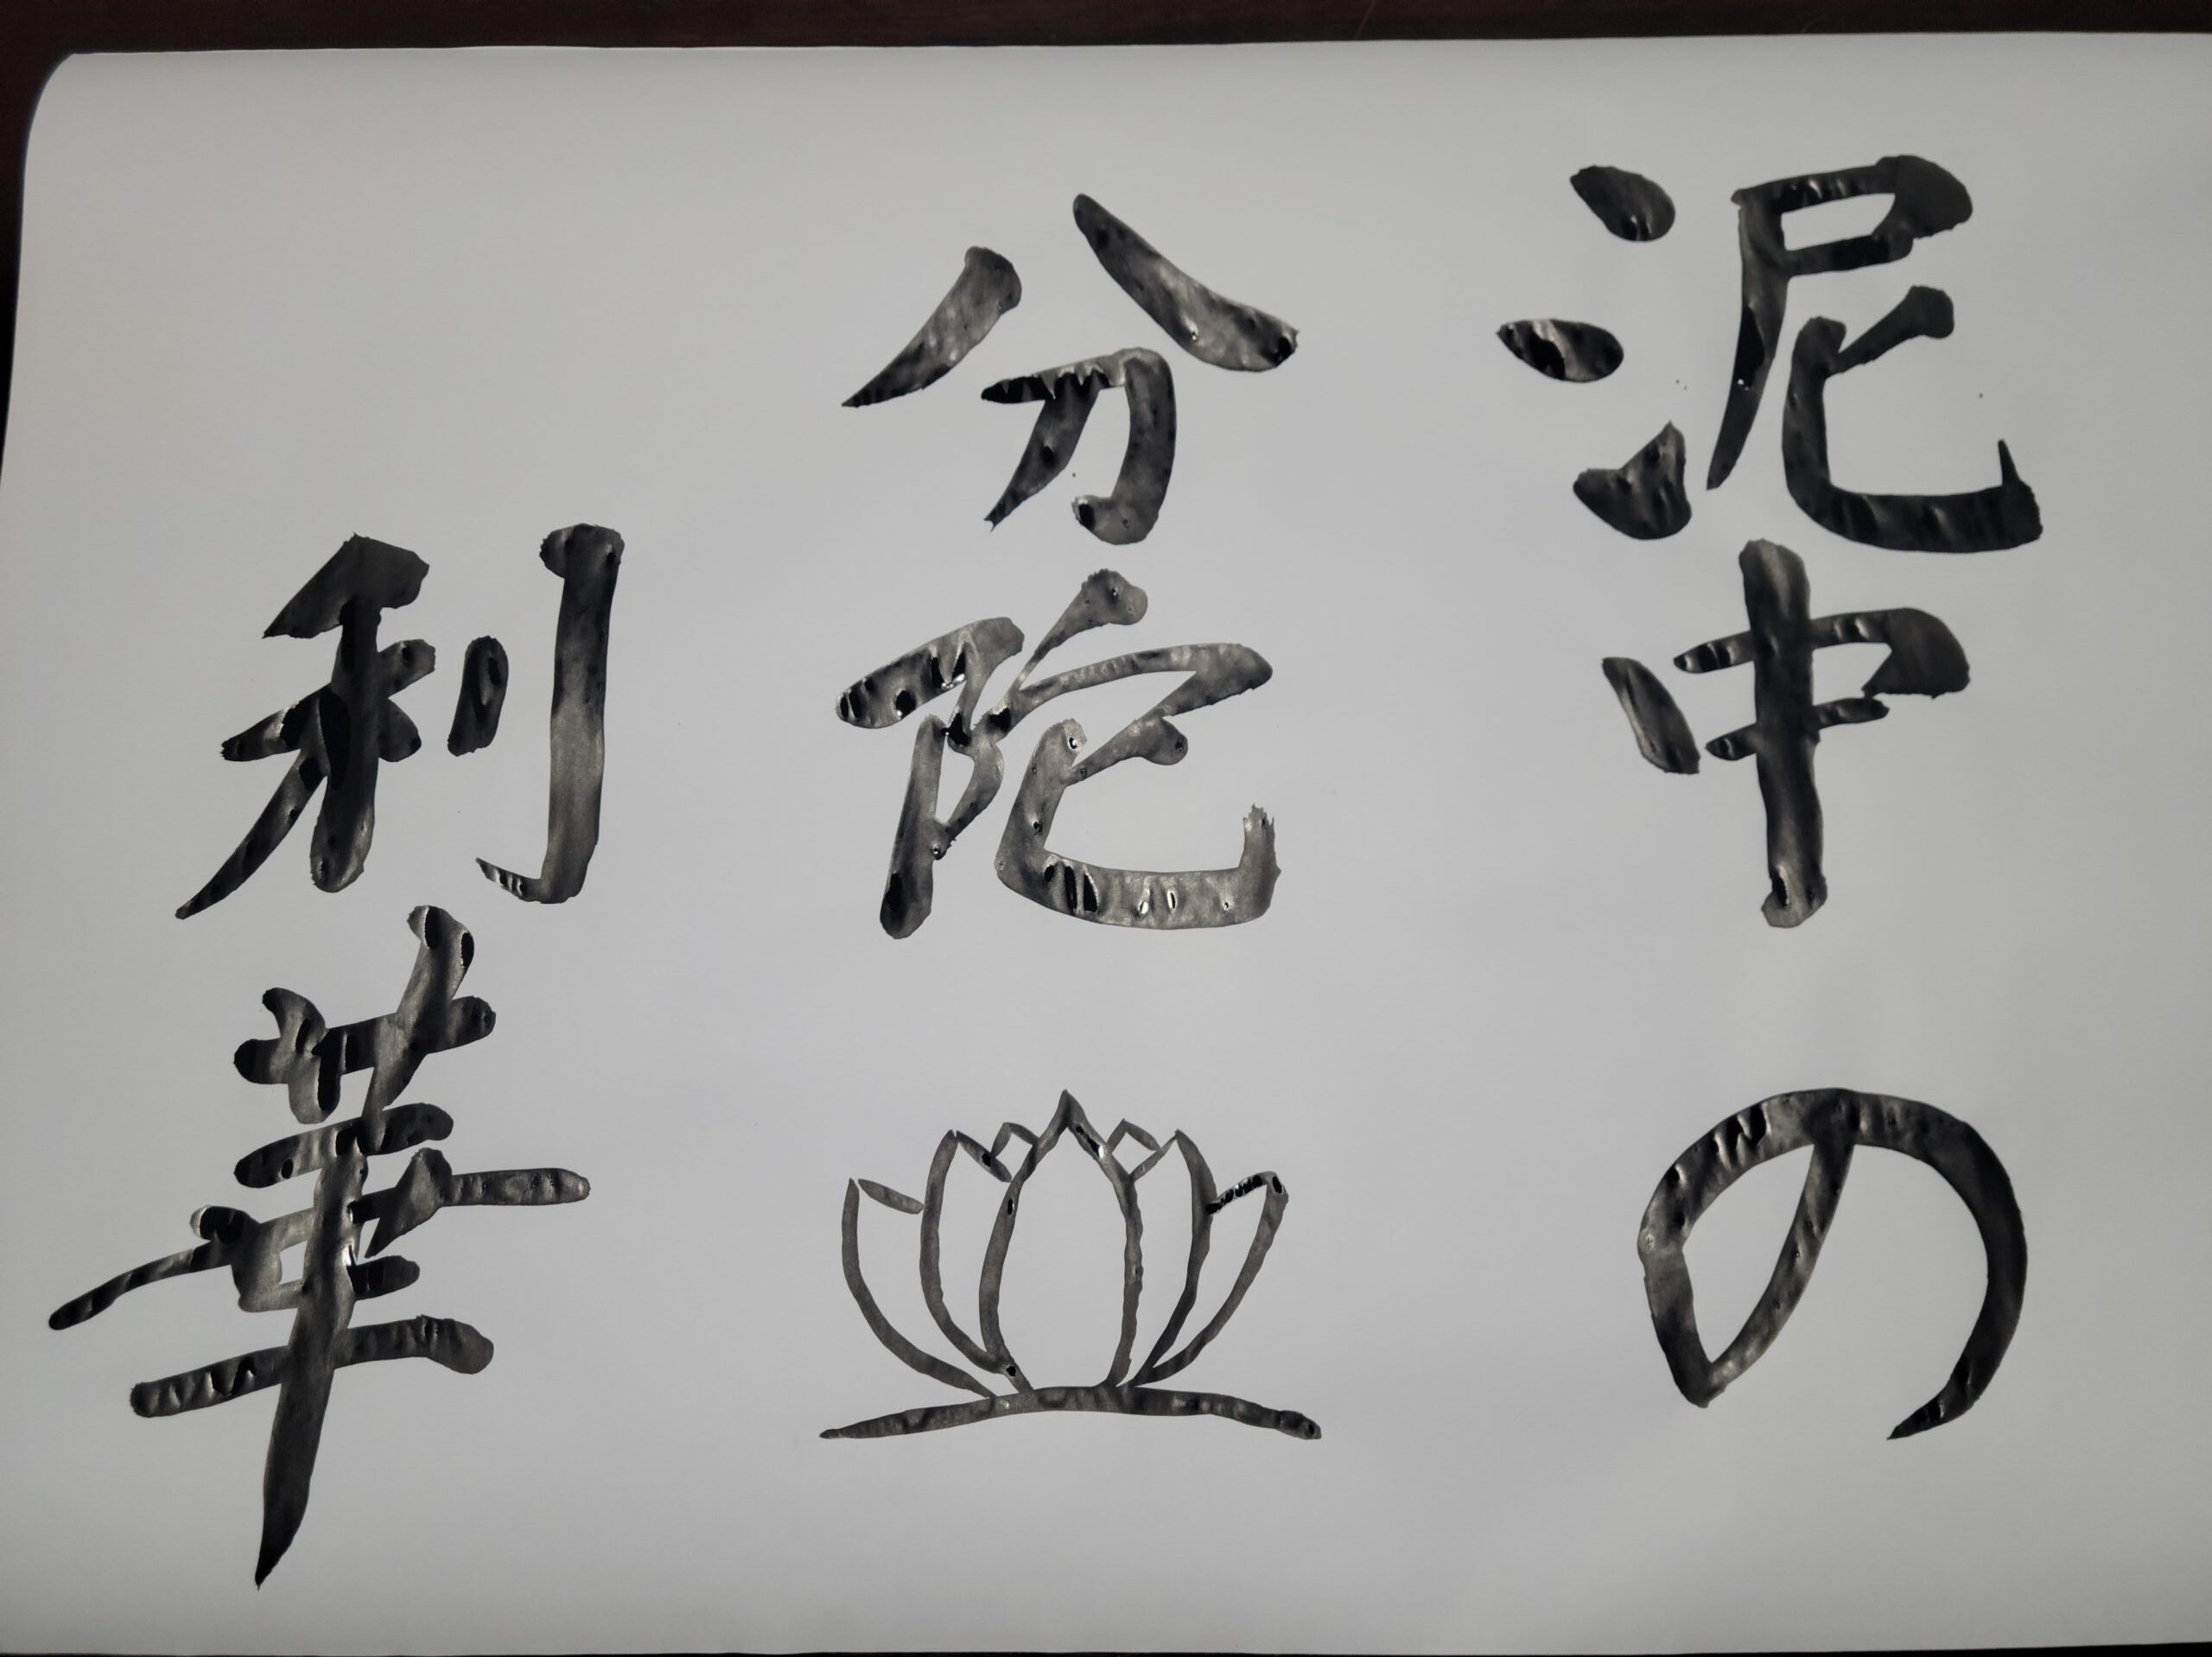 泥中の
分陀
利華